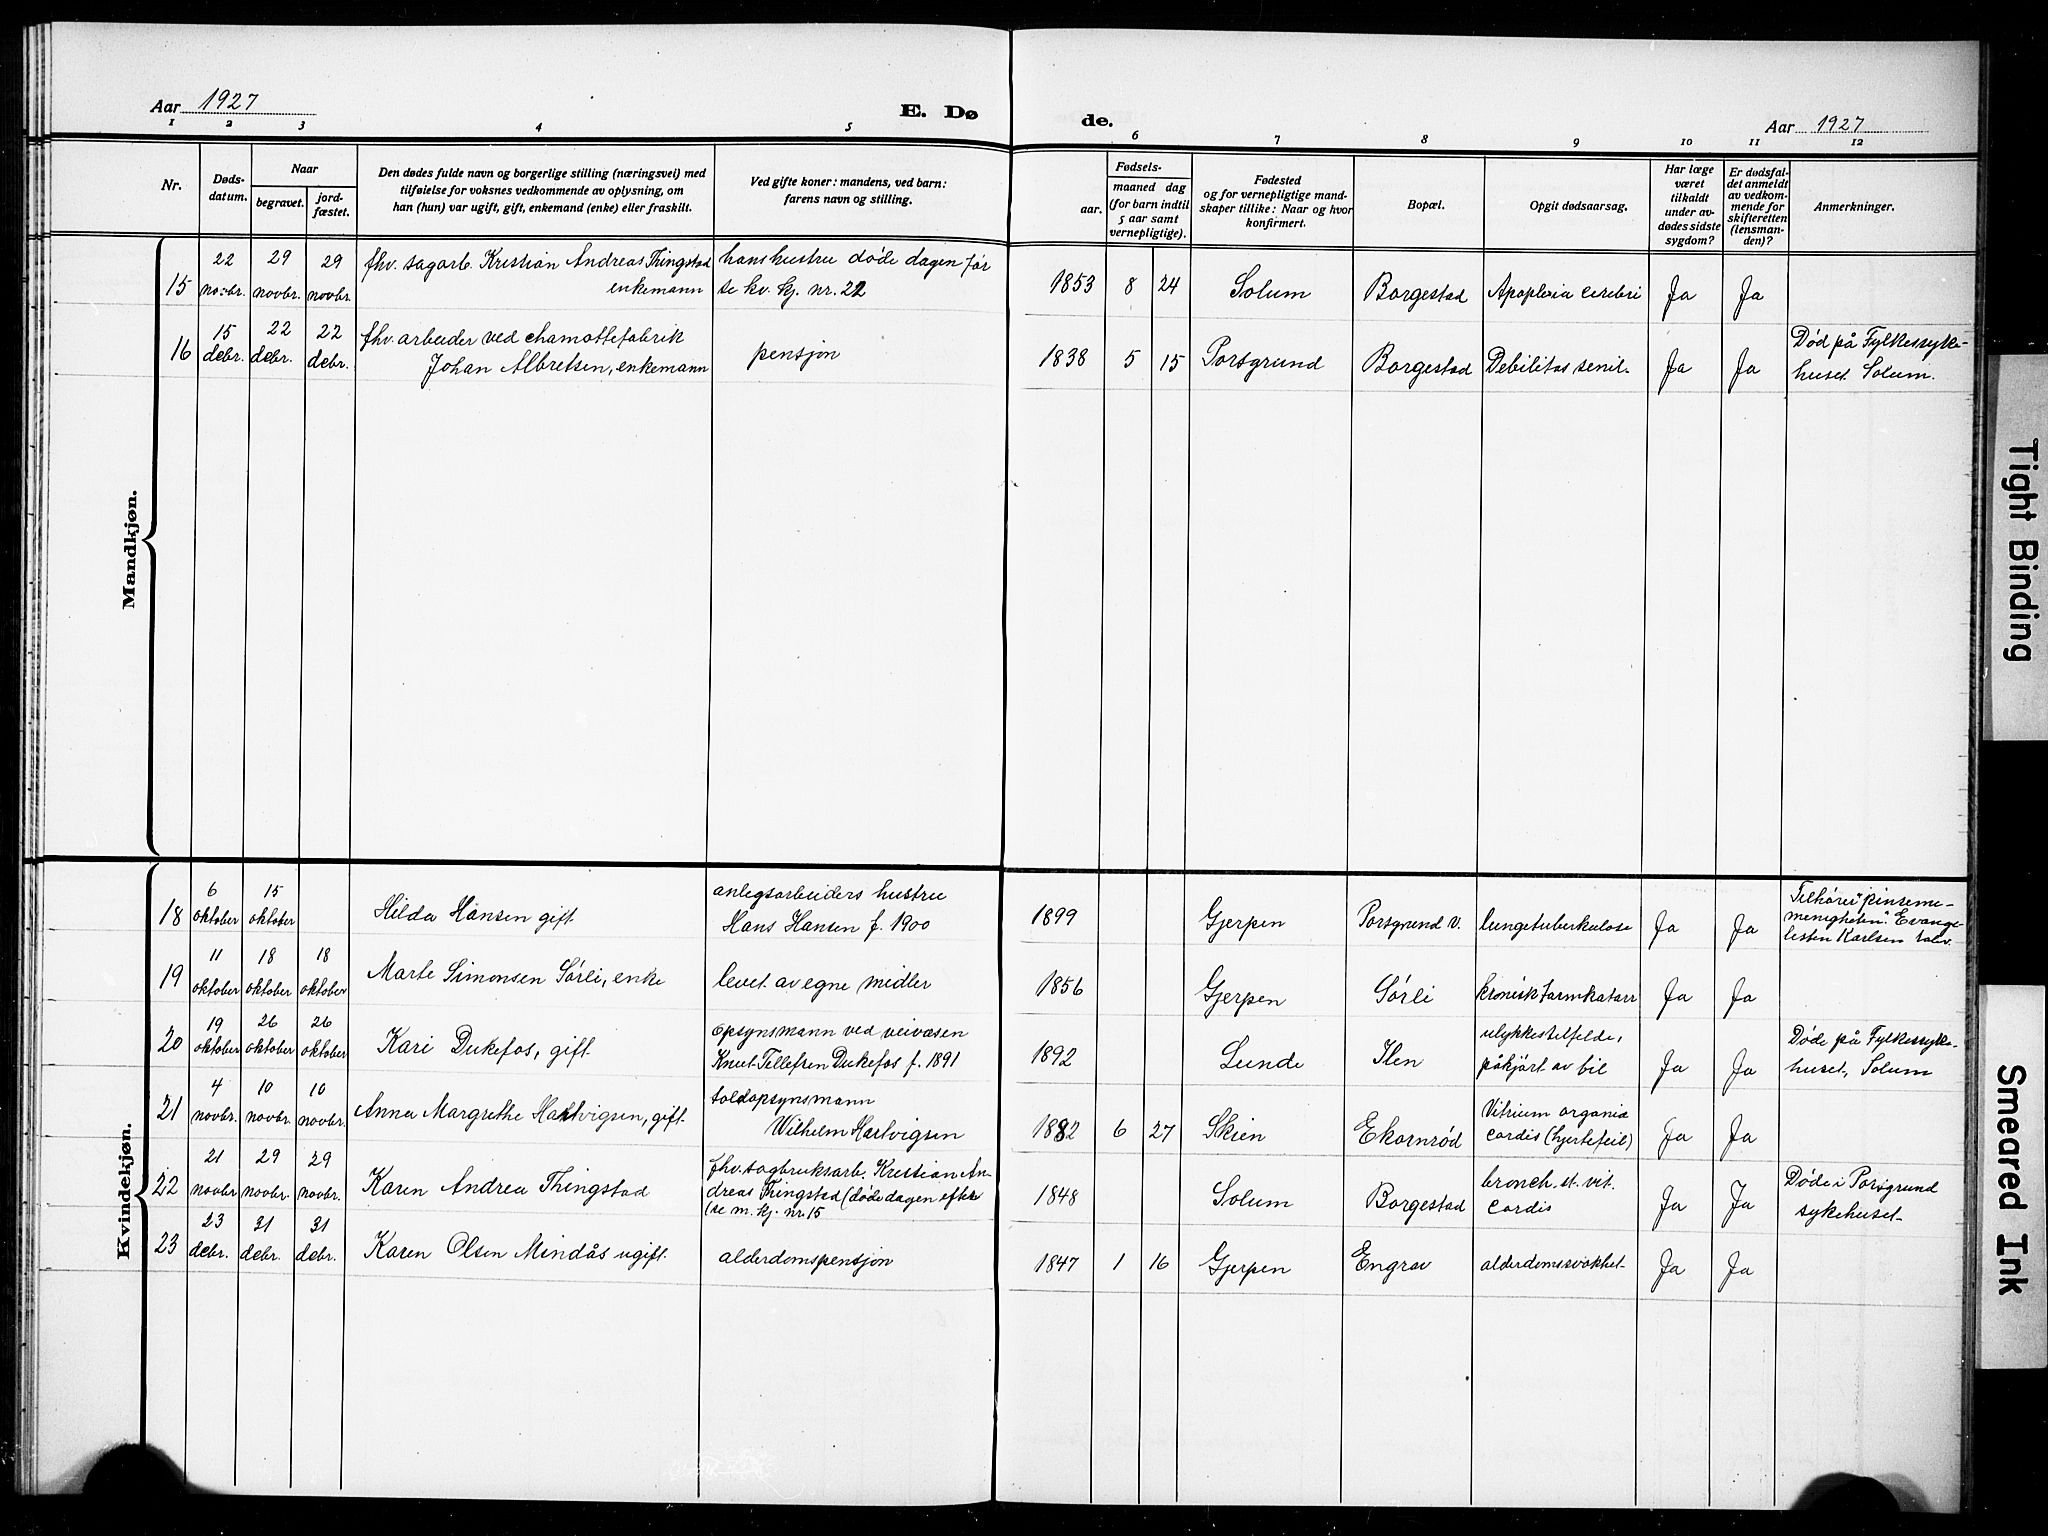 Aar 1927
E. Dø
de.
Aar 1927
1 2 3 4 5
6 7 8 9 10 11 12
Nr.
Døds-
datum.
Naar
begravet.
jord-
fæstet.
Den dødes fulde navn og borgerlige stilling (næringsvei) med
tilføielse for voksnes vedkommende av oplysning, om
han (hun) var ugift, gift, enkemand (enke) eller fraskilt.
Ved gifte koner: mandens, ved barn:
farens navn og stilling.
Fødsels-
aar.
maaned dag
(for barn indtil
5 aar samt
vernepligtige).
Fødested
og for vernepligtige mand-
skaper tillike: Naar og hvor
konfirmert.
Bopæl.
Opgit dødsaarsag.
Har læge
været
tilkaldt
under av-
dødes sidste
sygdom?
Er dødsfal-
det anmeldt
av vedkom-
mende for
skifteretten
(lensman-
den)?
Anmerkninger.
Mandkjøn.
15
22
novbr.
29
novbr.
29
novbr.
fhv. sagarb. Kristian Andreas Thingstad
enkemann
hans hustru døde dagen før
se kv. kj. nr. 22
1853 8 24 Solum Borgestad Apoplexia cerebri Ja Ja
16
15
debr.
22
debr.
22
debr.
fhv. arbeider ved chamottefabrik
Johan Albretsen, enkemann
pensjon
1838 5 15 Porsgrund Borgestad Debilitas senil. Ja Ja
Død på Fylkessyke-
huset Solum.
Kvindekjøn.
18
6
oktober
15
oktober
Hilda Hansen gift
anlegsarbeiders hustru
Hans Hansen f. 1900
1899 Gjerpen Porsgrund V. lungetuberkulose Ja Ja
Tilhører "pinseme-
menigheten". Evange-
listen Karlsen
19
11
oktober
18
oktober
18
oktober
Marte Simonsen Sørli, enke
levet av egne midler
1856 Gjerpen Sørli kronisk tarmkatarr Ja Ja
20
19
oktober
26
oktober
26
oktober
Kari Dukefos, gift
opsynsmann ved veivæsen
Knut Tellefsen Dukefos f. 1891
1892 Lunde Ilen
ulykkestilfelde,
påkjørt av bil
Ja Ja
Døde på Fylkessyke-
huset, Solum
21
4
novbr.
10
novbr.
10
novbr.
Anna Margrethe Hartvigsen, gift
toldopsynsmann
Wilhelm Hartvigsen
1882 6 27 Skien Ekornrød
Vitium organic
cordis (hjertefeil)
Ja Ja
22
21
novbr
29
novbr.
29
novbr.
Karen Andrea Thingstad
fhv. sagbruksarb. Kristian An-
dreas Thingstad (døde dagen efter
(se m. kj. nr. 15
1848 Solum Borgestad
bronch. et. vit.
cordis
Ja Ja
Døde i Porsgrund
sykehuset
23
23
debr.
31
debr.
31
debr.
Karen Olsen Mindås ugift
alderdomspensjon
1847 1 16 Gjerpen Engrav alderdomssvakhet Ja Ja
Tight Binding
Smeared Ink